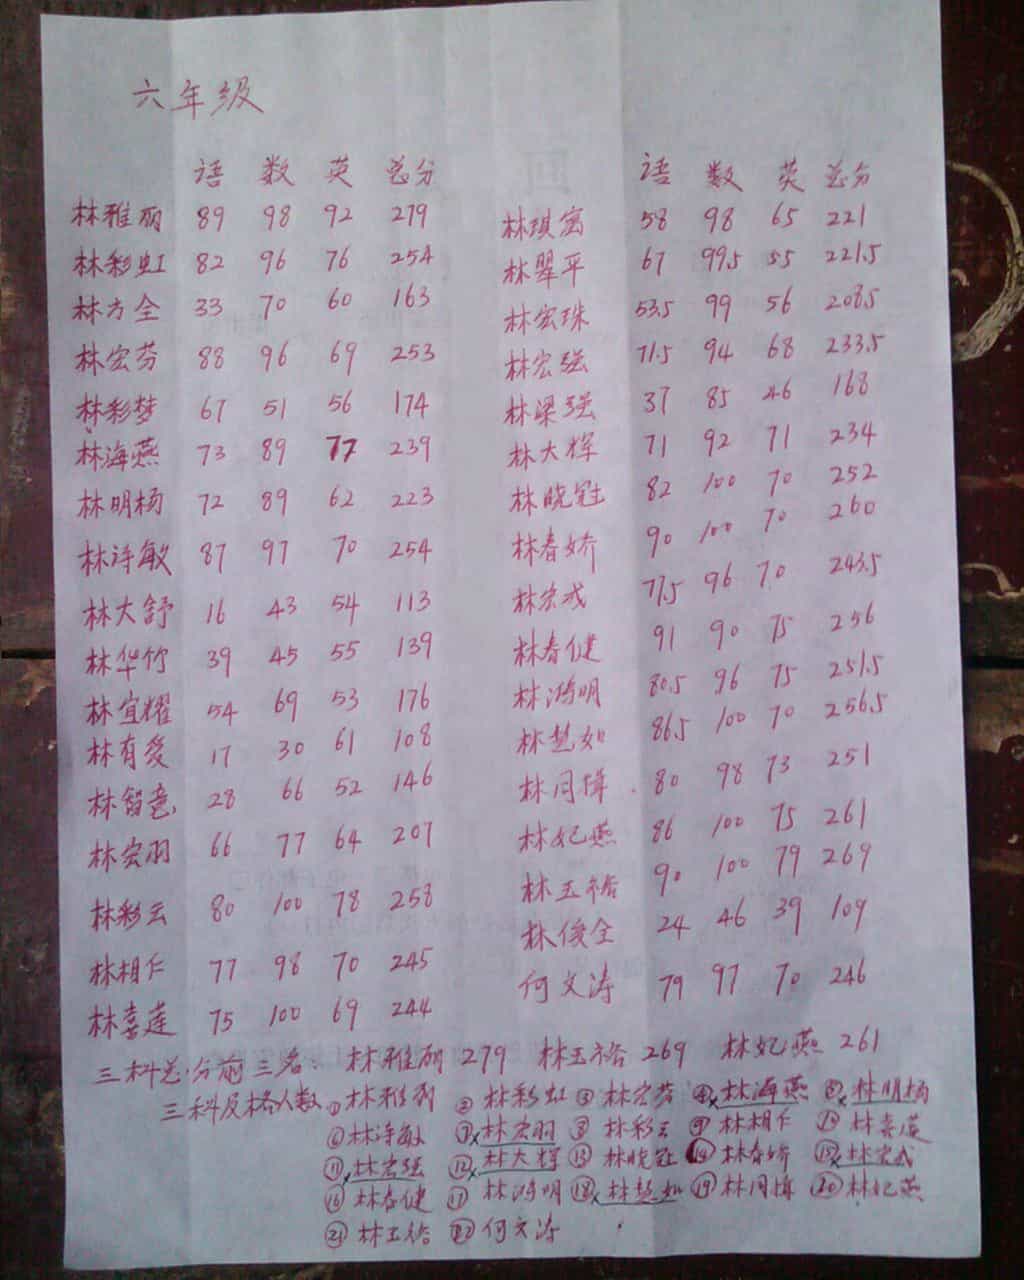 六年级
语 数 英 总分
林雅丽 89 98 92 279
林彩虹 82 96 76 254
林方全 33 70 60 163
林宏芬 88 96 69 253
林彩梦 67 51 56 174
林海燕 73 89 77 239
林明杨 72 89 62 223
林诗敏 87 97 70 254
林大舒 16 43 54 113
林华竹 39 45 55 139
林宜耀 54 69 53 176
林有发 17 30 61 108
林智意 28 66 52 146
林宏羽 66 77 64 207
林彩云 80 100 78 258
林相仁 77 98 70 245
林喜莲 75 100 69 244
语 数 英 总分
林琪富 58 98 65 221
林翠平 67 99.5 55 221.5
林宏珠 53.5 99 56 208.5
林宏强 71.5 94 68 233.5
林梁强 37 85 46 168
林大辉 71 92 71 234
林晓冠 82 100 70 252
林春娇 90 100 70 260
林宏成 77.5 96 70 243.5
林春健 91 90 75 256
林鸿明 80.5 96 75 251.5
林慧如 86.5 100 70 256.5
林月 80 98 73 251
林妃燕 86 100 75 261
林玉裕 90 100 79 269
林俊全 24 46 39 109
何文涛 79 97 70 246
三科总分前三名: 林雅丽 279 林玉裕 269 林妃燕 261
三科及格人数 ①林雅丽 ②林彩虹 ③林宏芬 ④林海燕 ⑤林明杨
⑥林诗敏 ⑦林宏羽 ⑧林彩云 ⑨林相仁 ⑩林喜莲
⑪林宏强 ⑫林大辉 ⑬林晓冠 ⑭林春娇 ⑮林宏成
⑯林春健 ⑰林鸿明 ⑱林慧如 ⑲林月 ⑳林妃燕
㉑林玉裕 ㉒何文涛